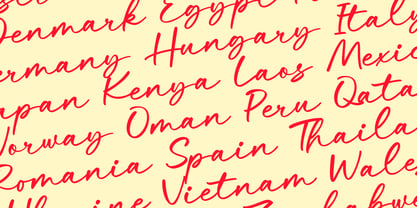 Denmark Egypt
ermany Hungary Italy
apan Kenya Laos Mexic
Norway Oman Peru Qata
Romania Spain Thaila
kraine Vietnam Wales